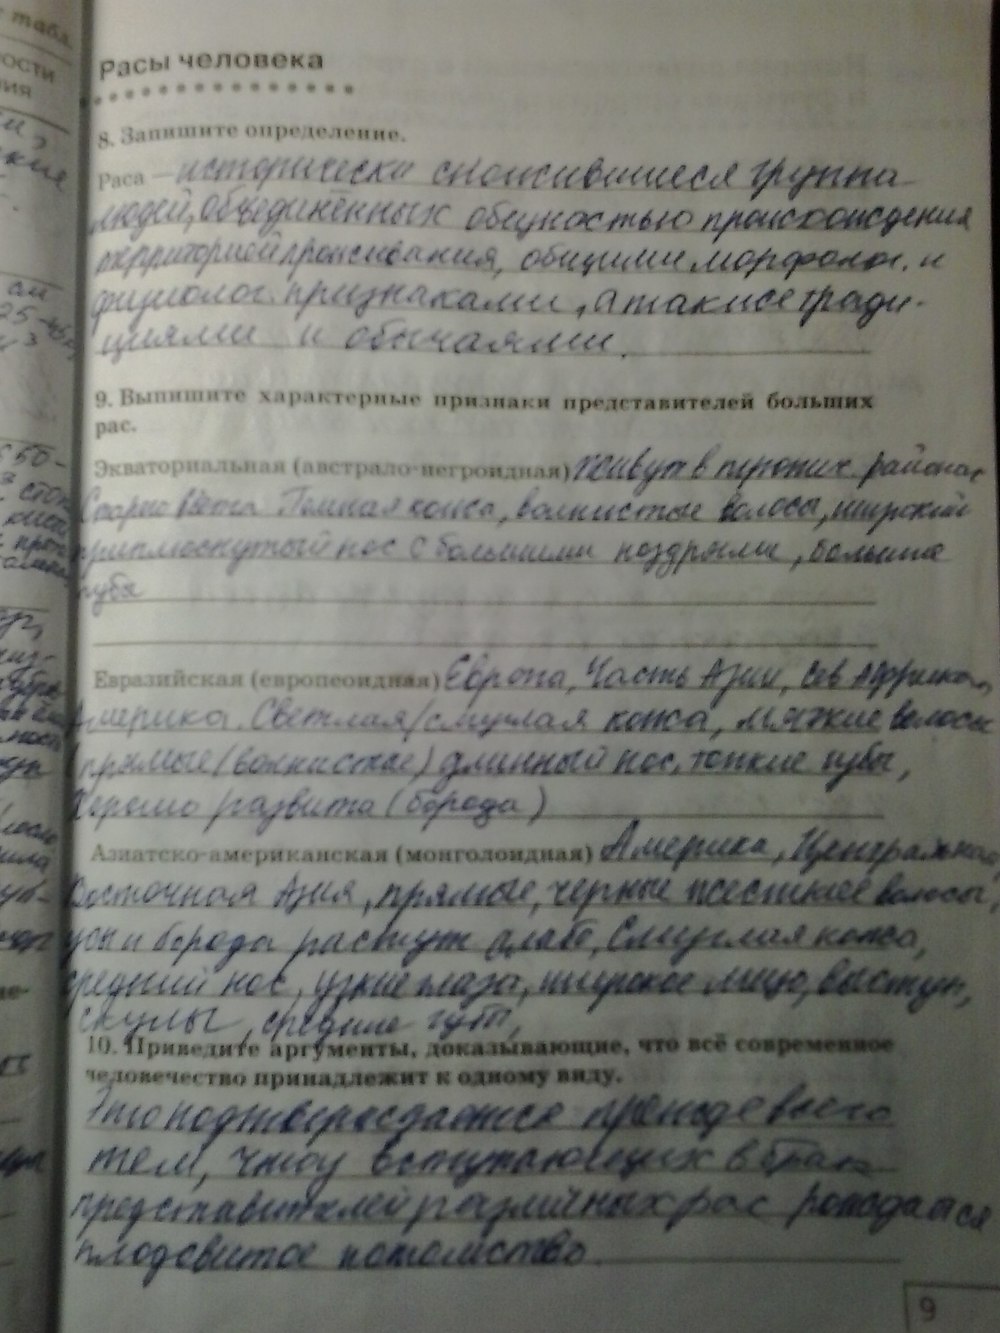 табл.
ОСТИ
Расы человека
8. Запишите определение.
Раса – исторически сложившиеся группа
людей, объединённых общностью происхождения
территорией проживания, общими морфолог. и
физиолог. признаками, а также тради-
циями и обычаями.
9. Выпишите характерные признаки представителей больших
рас.
Экваториальная (австрало-негроидная) живут в районах
Старого Света Темная кожа, волнистые волосы, широкий
приплюснутый нос с большими ноздрями, большие
губы
Евразийская (европеоидная) Европа, Часть Азии, Сев Африка,
Америка. Светлая/смуглая кожа, мягкие волосы
прямые (волнистые) длинный нос, тонкие губы,
Хорошо развита (борода)
Азиатско-американская (монголоидная) Америка, Центральная,
Восточная Азия, прямые, черные жесткие волосы,
усы и борода растут слабо, Смуглая кожа,
средний нос, узкие глаза, широкое лицо, выступ,
скулы, средние
10. Приведите аргументы, доказывающие, что всё современное
человечество принадлежит к одному виду.
Это подтверждается прежде всего
тем, что у вступающих в брак
представителей различных рас рождается
плодовитое потомство.
9